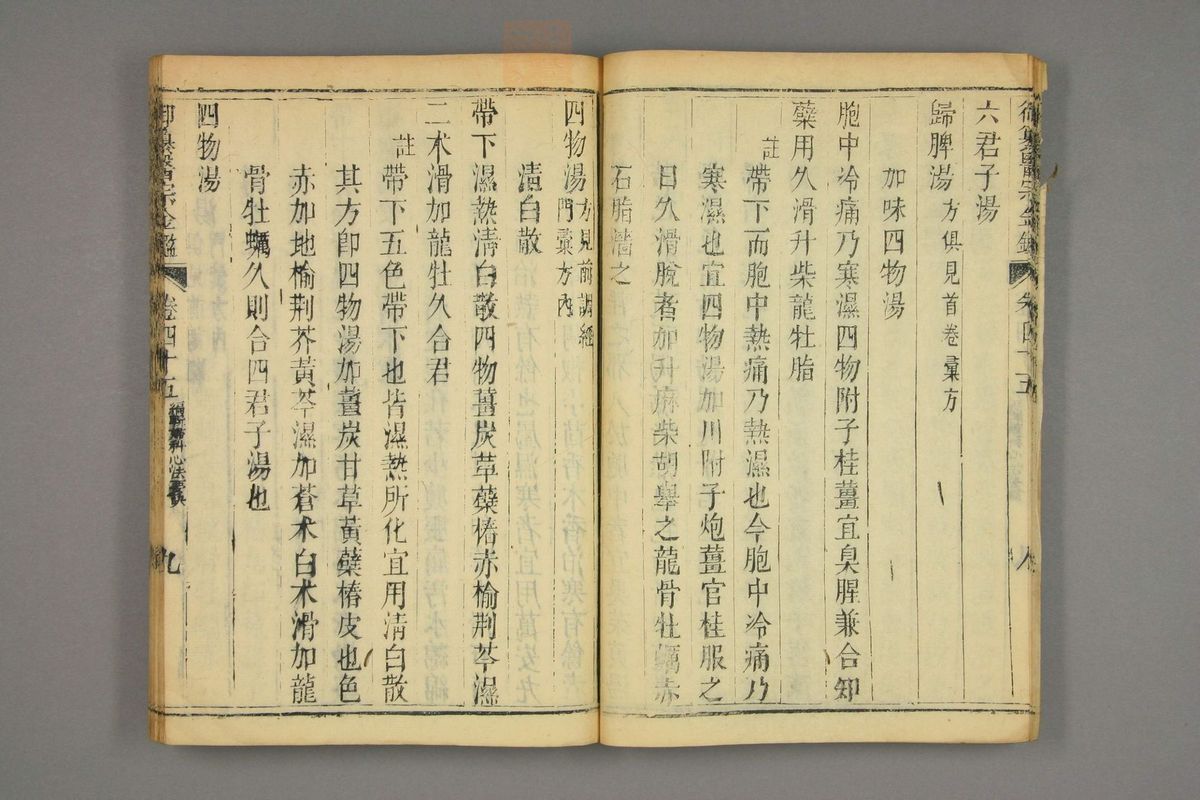 御纂醫宗金鑑 卷四十五 八
六君子湯
歸脾湯 方俱見首卷彙方
加味四物湯
胞中冷痛乃寒濕四物附子桂薑宜臭腥兼合知
蘗用久滑升柴龍牡脂
註 帶下而胞中熱痛乃熱濕也今胞中冷痛乃
寒濕也宜四物湯加川附子炮薑官桂服之
日久滑脫者加升麻柴胡舉之龍骨牡蠣赤
石脂濇之
四物湯 方見前調經
門彙方內
清白散
帶下濕熱清白散四物薑炭草蘗椿赤榆荆芩濕
二术滑加龍牡久合君
註 帶下五色帶下也皆濕熱所化宜用清白散
其方卽四物湯加薑炭甘草黃蘗椿皮也色
赤加地榆荆芥黃芩濕加蒼术白术滑加龍
骨牡蠣久則合四君子湯也
四物湯
御纂醫宗金鑑 卷四十五 編輯婦科心法要訣 九